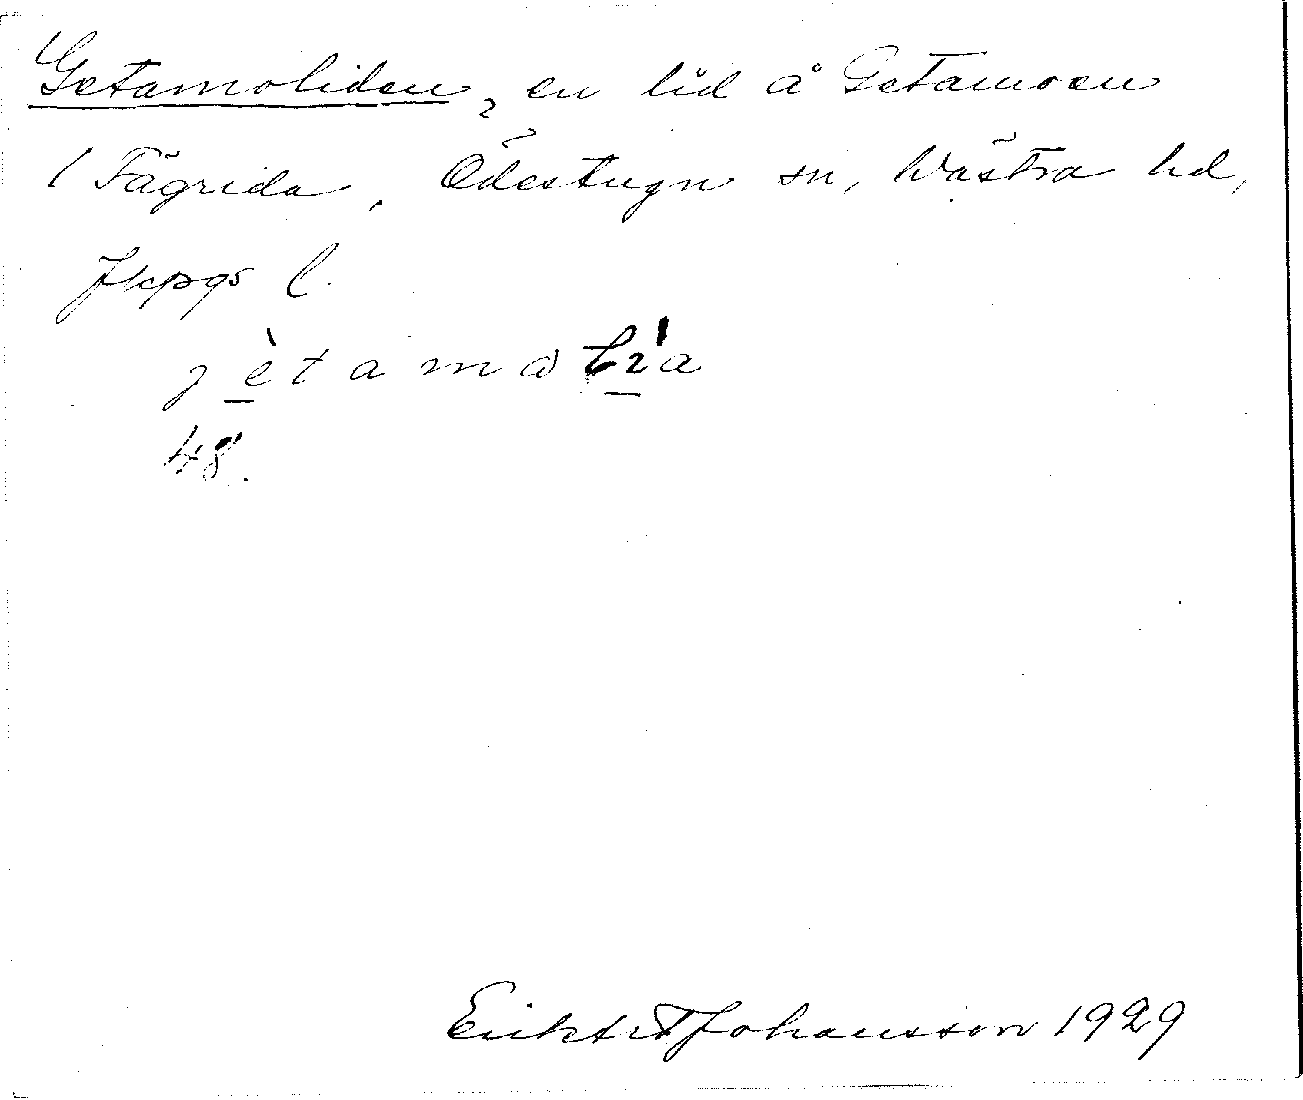 Getamoliden, en lid å Getamoen
i Fägrida, Ödestugu sn, Västra hd,
Jkpgs l.
48.
Johansson 1929